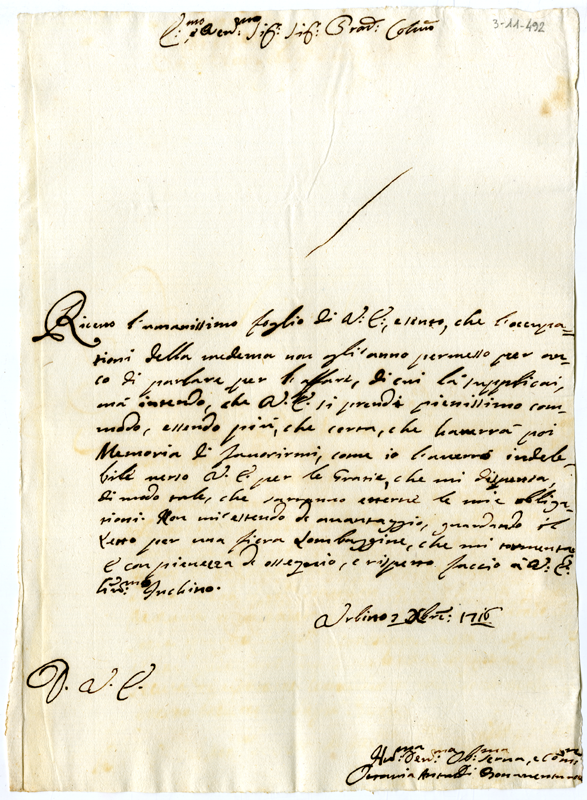 3-11-492
E.mo e Rev.mo Sig.r Sig.r Prad: Col.mo
Ricevo l'umanissimo foglio di V. E., e sento, che l'occupa=
tioni della medema non gli'anno permesso per an=
co di parlare per l'affare, di cui la supplicai,
mà intendo, che V. E. si prende pienissimo com=
modo, essendo più, che certa, che haverrà poi
Memoria di favorirmi, come io l'haverò indele=
bile verso V. E. per le Grazie, che mi dispensa,
di modo tale, che saranno eterne le mie obliga=
tioni. Non mi estendo di avantaggio, guardando il
Letto per una fiera Lombaggine, che mi tormenta
E con pienezza di ossequio, e rispetto faccio à V. E.
hu.mo Inchino.
Urbino 7 Xbre: 1716
D. V. E.
Hu.ma Dev.ma Ob: Serva, e
Antaldi Bonaventura